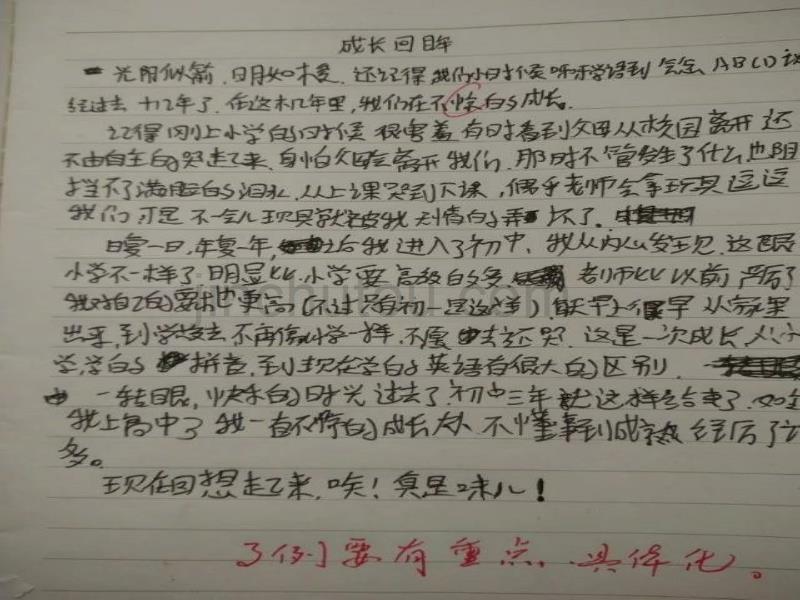 成长回眸
光阴似箭，日月如梭，还记得我们小时候呀呀学语到会念ABCD
经过去十几年了，在这十几年里，我们在不惊的成长。
记得刚上小学的时候很害羞有时看到父母从校园离开还
不由自主的哭起来，身怕父母离开我们，那时不管发生了什么也阻
挡不了满脸的泪水，从上课哭到下课，偶乎老师会拿玩具逗逗
我们，可是不会儿玩具就被我无情的弄坏了。
日复一日，年复一年，之后我进入了初中，我从内心发现，这跟
小学不一样了明显比小学要高级的多 老师比以前严厉了
我对自己的要求也更高（不过只有初一是这样）每天早上很早从家里
出来，到学校去不再像小学一样，不愿去还哭，这是一次成长，从小
学，学的拼音，到现在学的英语有很大的区别。
一转眼，快乐的时光过去了，初中三年就这样结束了，如今
我上高中了我一直不停的成长从不懂事到成熟经历了
多。
现在回想起来，唉！真是味儿！
了例子要有重点，具体化。
jinchutou.com